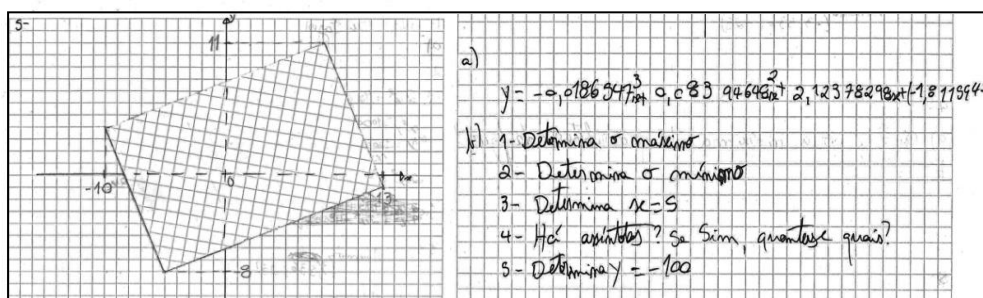 5-
y
11
-10
0
13
x
-8
a)
y = -0,0186947x³+ 0,083 94648x²+ 2,12378298x+(-1,8119944
b) 1- Determina o máximo
2- Determina o mínimo
3- Determina x=5
4- Há assíntotas? Se Sim, quantas e quais?
5- Determina y = -100